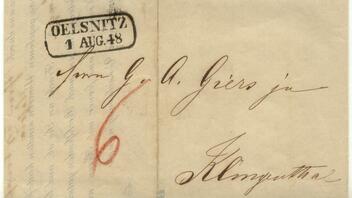 OELSNITZ
1 AUG. 48
Herrn G. A. Giers jn
6
Klingenthal